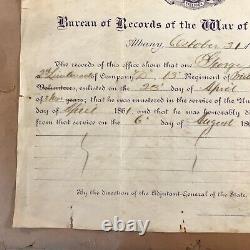 Bureau of Records of the War of
Albany, October 31
The records of this office show that one George
2d Lieutenant of Company "D" 13" Regiment of
Volunteers, enlisted on the 23" day of April
of 3 mos years; that he was mustered in the service of the Un
day of April 1861,
from that service on the 6" day of August 186
By the direction of the Adjutant-General of the State.